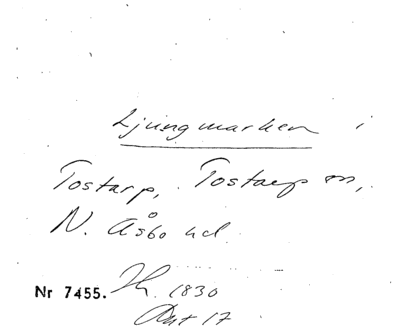 Ljungmarken i
Tostarp, Tostarp sn,
N. Åsbo hd.
Nr 7455. Th. 1830
Akt 17